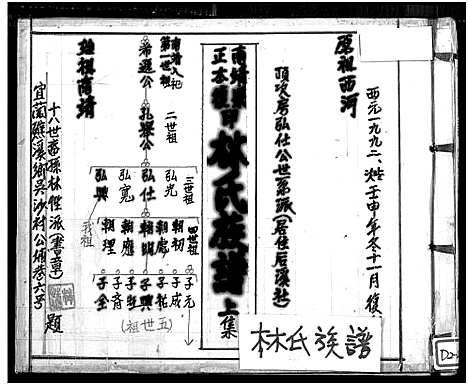 西元一九九二、歲壬申年冬十一月復
原祖西河
頂次房弘仕公世系派（居住后溪社）
南靖
正本
林氏族譜
上集
南靖入祀
第一世祖
希遜公
二世祖
孔舉公
三世祖
弘光
弘仕
弘寬
弘興
我祖
四世祖
朝初
朝處
朝明
朝應
朝理
子元
子成
子乾
子興
子旺
子奇
子全
五世祖
雄祖南靖
十八世裔孫林性派（書草）
宜蘭縣礁溪鄉吳沙村公埔巷六号
題
林氏族譜
D2-